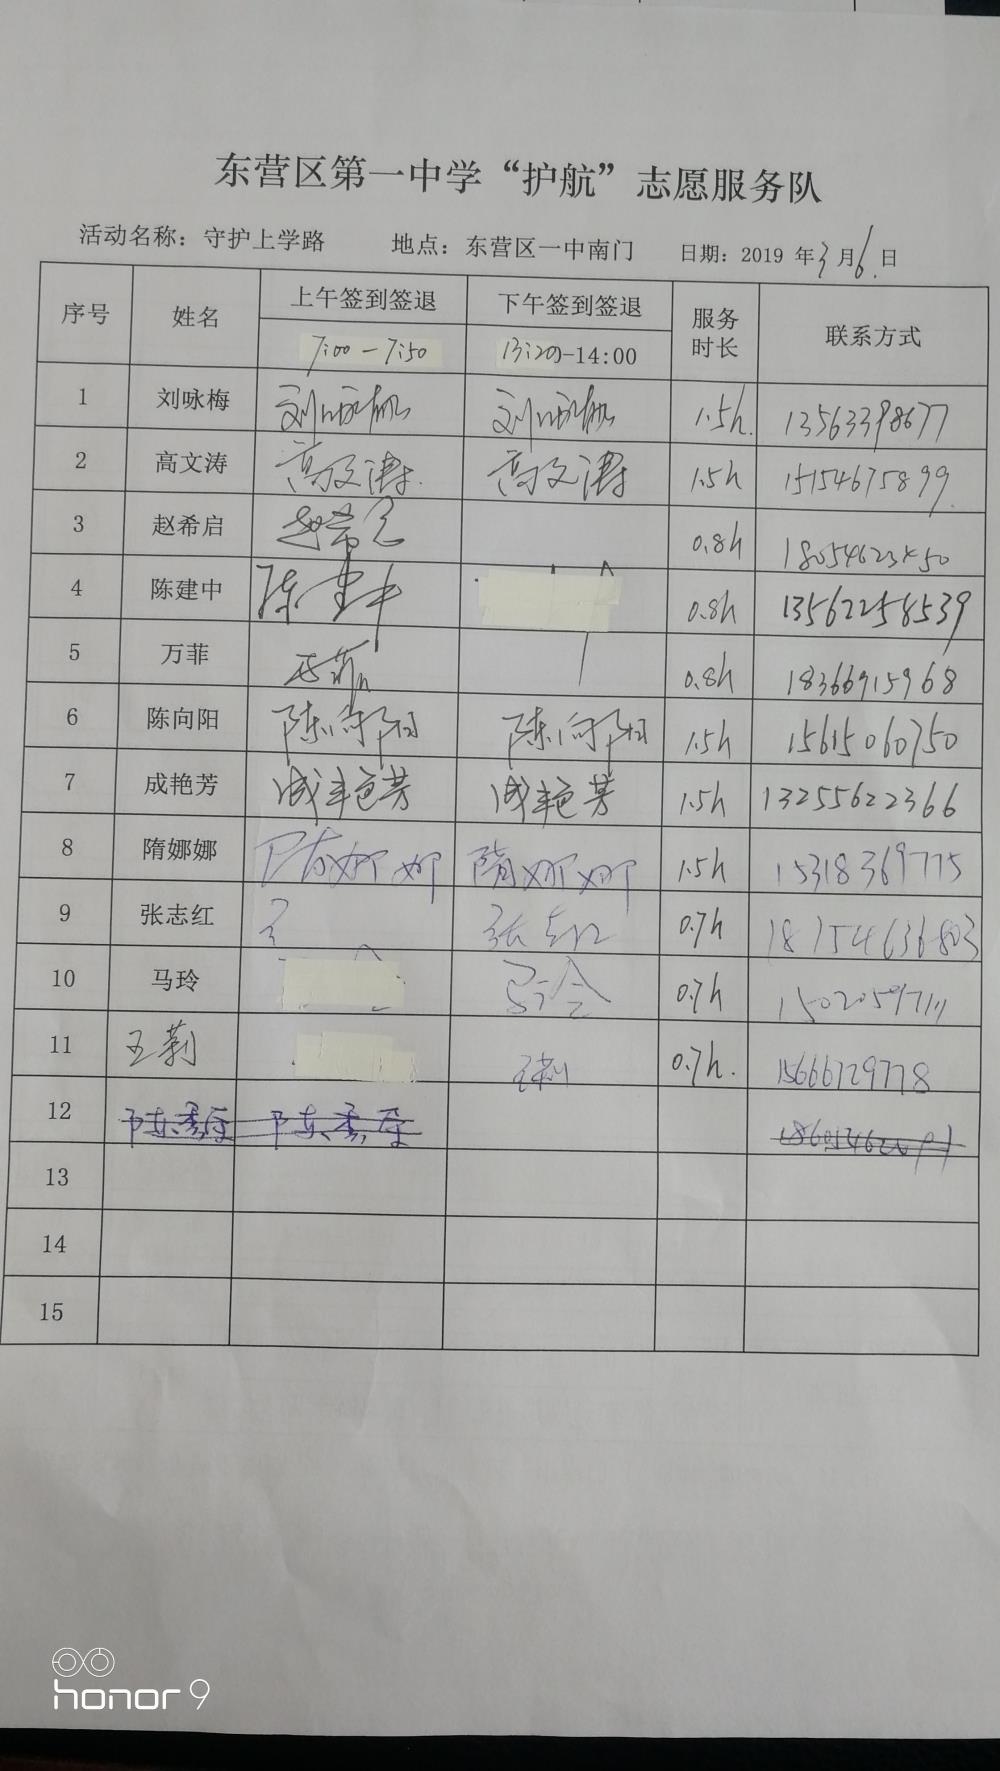 东营区第一中学“护航”志愿服务队
活动名称：守护上学路 地点：东营区一中南门 日期：2019 年3月6日
序号 姓名 上午签到签退 下午签到签退 服务时长 联系方式
7:00-7:50 13:20-14:00
1 刘咏梅 刘咏梅 刘咏梅 1.5h. 13563398677
2 高文涛 高文涛 高文涛 1.5h 15154675899
3 赵希启 赵希启 0.8h
4 陈建中 陈建中 0.8h 13562258539
5 万菲 万菲 0.8h 18366915968
6 陈向阳 陈向阳 陈向阳 1.5h 15615060750
7 成艳芳 成艳芳 成艳芳 1.5h 13255622366
8 隋娜娜 隋娜娜 隋娜娜 1.5h 15318369775
9 张志红 张志红 0.7h
10 马玲 马玲 0.7h 15020597111
11 王莉 王莉 0.7h. 15666729778
12
13
14
15
honor 9